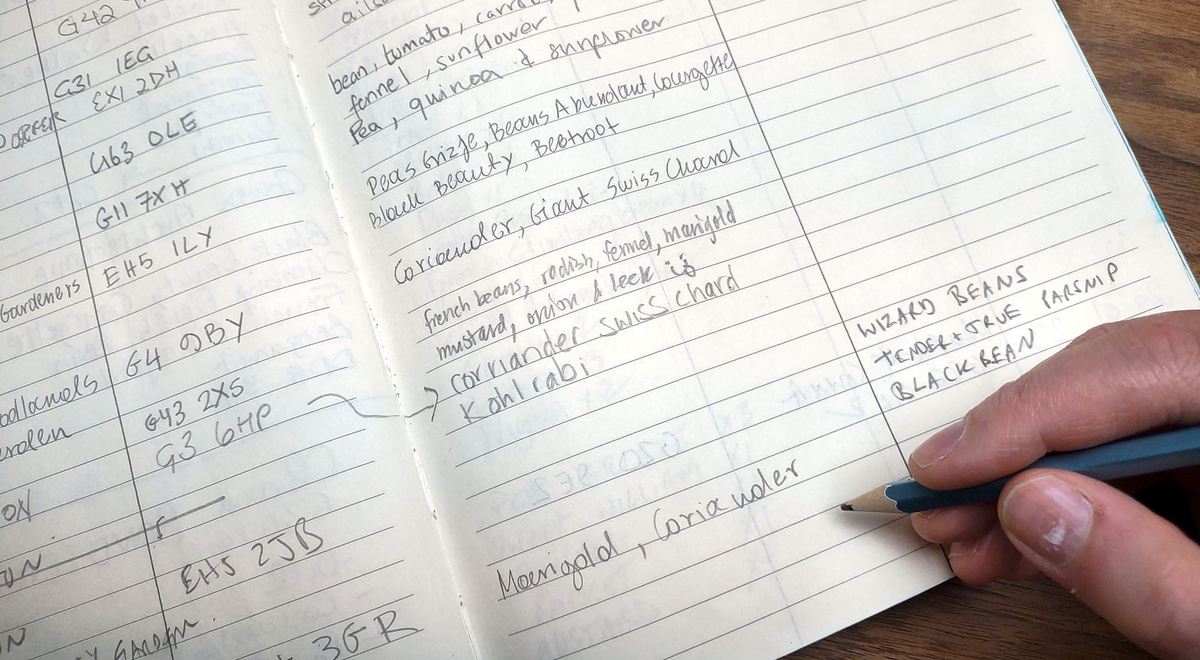 G42
G31 1EG
EX1 2DH
G63 0LE
G11 7XH
Gardeners EH5 1LY
G4 9BY
G43 2XS
G3 6HP
ON
EH5 2JB
3GR
bean, tomato,
fennel, sunflower
Pea, quinoa & sunflower
Peas Grizje, Beans Abundant, Courgette
Black Beauty, Beetroot
Coriander, Giant Swiss Chard
french beans, radish, fennel, marigold
mustard, onion & leek
corriander swiss chard
Kohlrabi
Maerigold, Coriander
WIZARD BEANS
TENDER + TRUE PARSNIP
BLACK BEAN